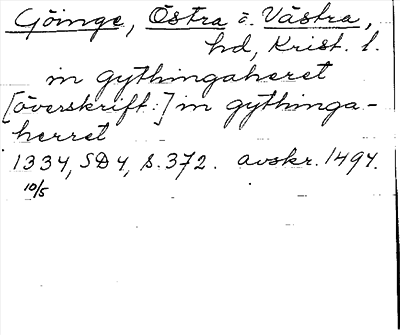 Göinge, Östra o. Västra,
hd, Krist. l.
in gythingaheret
[överskrift:] in gythinga-
herret
1334, SD 4, s. 372. avskr. 1494.
10/5